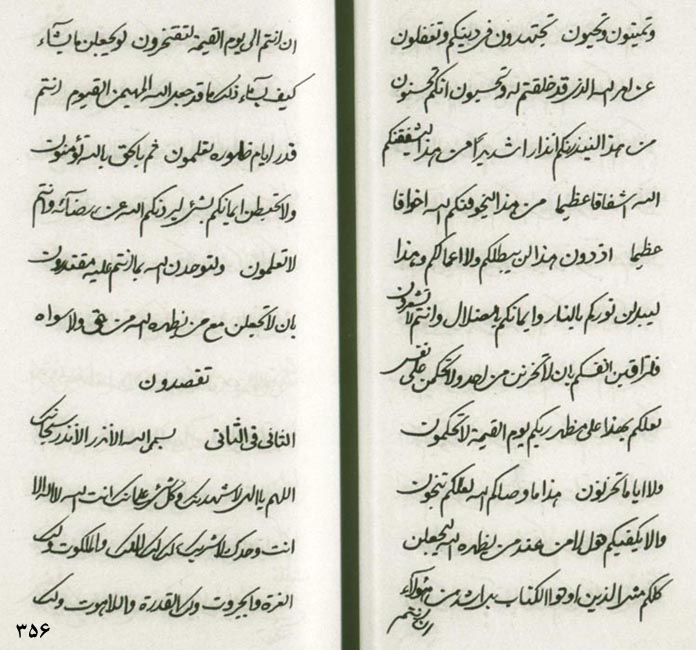 وتميتون وتحيون تجتهدون في دينكم وتغفلون
عن امر الله الذي قد خلقتم له وتحسبون انكم تحسنون
من هذا لينذرنكم انذارا شديرا من هذا ليشفقنكم
الله اشفاقا عظيما من هذا ليخوفنكم الله اخوافا
عظيما اذ دون هذا لن يبطلكم ولا اعمالكم وهذا
ليبدلن نوركم بالنار وايمانكم بالضلال وانتم لا تشعرون
فلتراقبن انفسكم بان لا تحزنن من احد ولا تحكمن على نفس
لعلكم بهذا على مظهر ربكم يوم القيمة لا تحكمون
ولا اياه تحزنون هذا ما وصاكم الله لعلكم تنجون
والا يكفيكم هل لا من عند من يظهره الله ليجعلن
كلكم مثل الذين اوتوا الكتاب بل اشد من هؤلاء
ان انتم
ان انتم الى يوم القيمة لتفتخرون لو يجعلن ما يشاء
كيف يشاء ذلك ما قد جعل الله المهيمن القيوم انتم
قدر ايام ظهوره لتعلمون ثم بالحق بالله تؤمنون
ولا تحبطن ايمانكم بشيء ليردنكم الله عن رضائه وانتم
لا تعلمون ولتوحدن الله بما انتم عليه مقتدرون
بان لا تجعلن مع من يظهره الله من شيء ولا سواه
تقصدون
الثاني في الثاني بسم الله الأنذر الأنذر سبحانك
اللهم يا الهي لاشهدنك وكل شيء على انك انت الله لا اله الا
انت وحدك لا شريك لك لك الملك والملكوت ولك
العزة والجبروت ولك القدرة واللاهوت ولك
۳۵۶